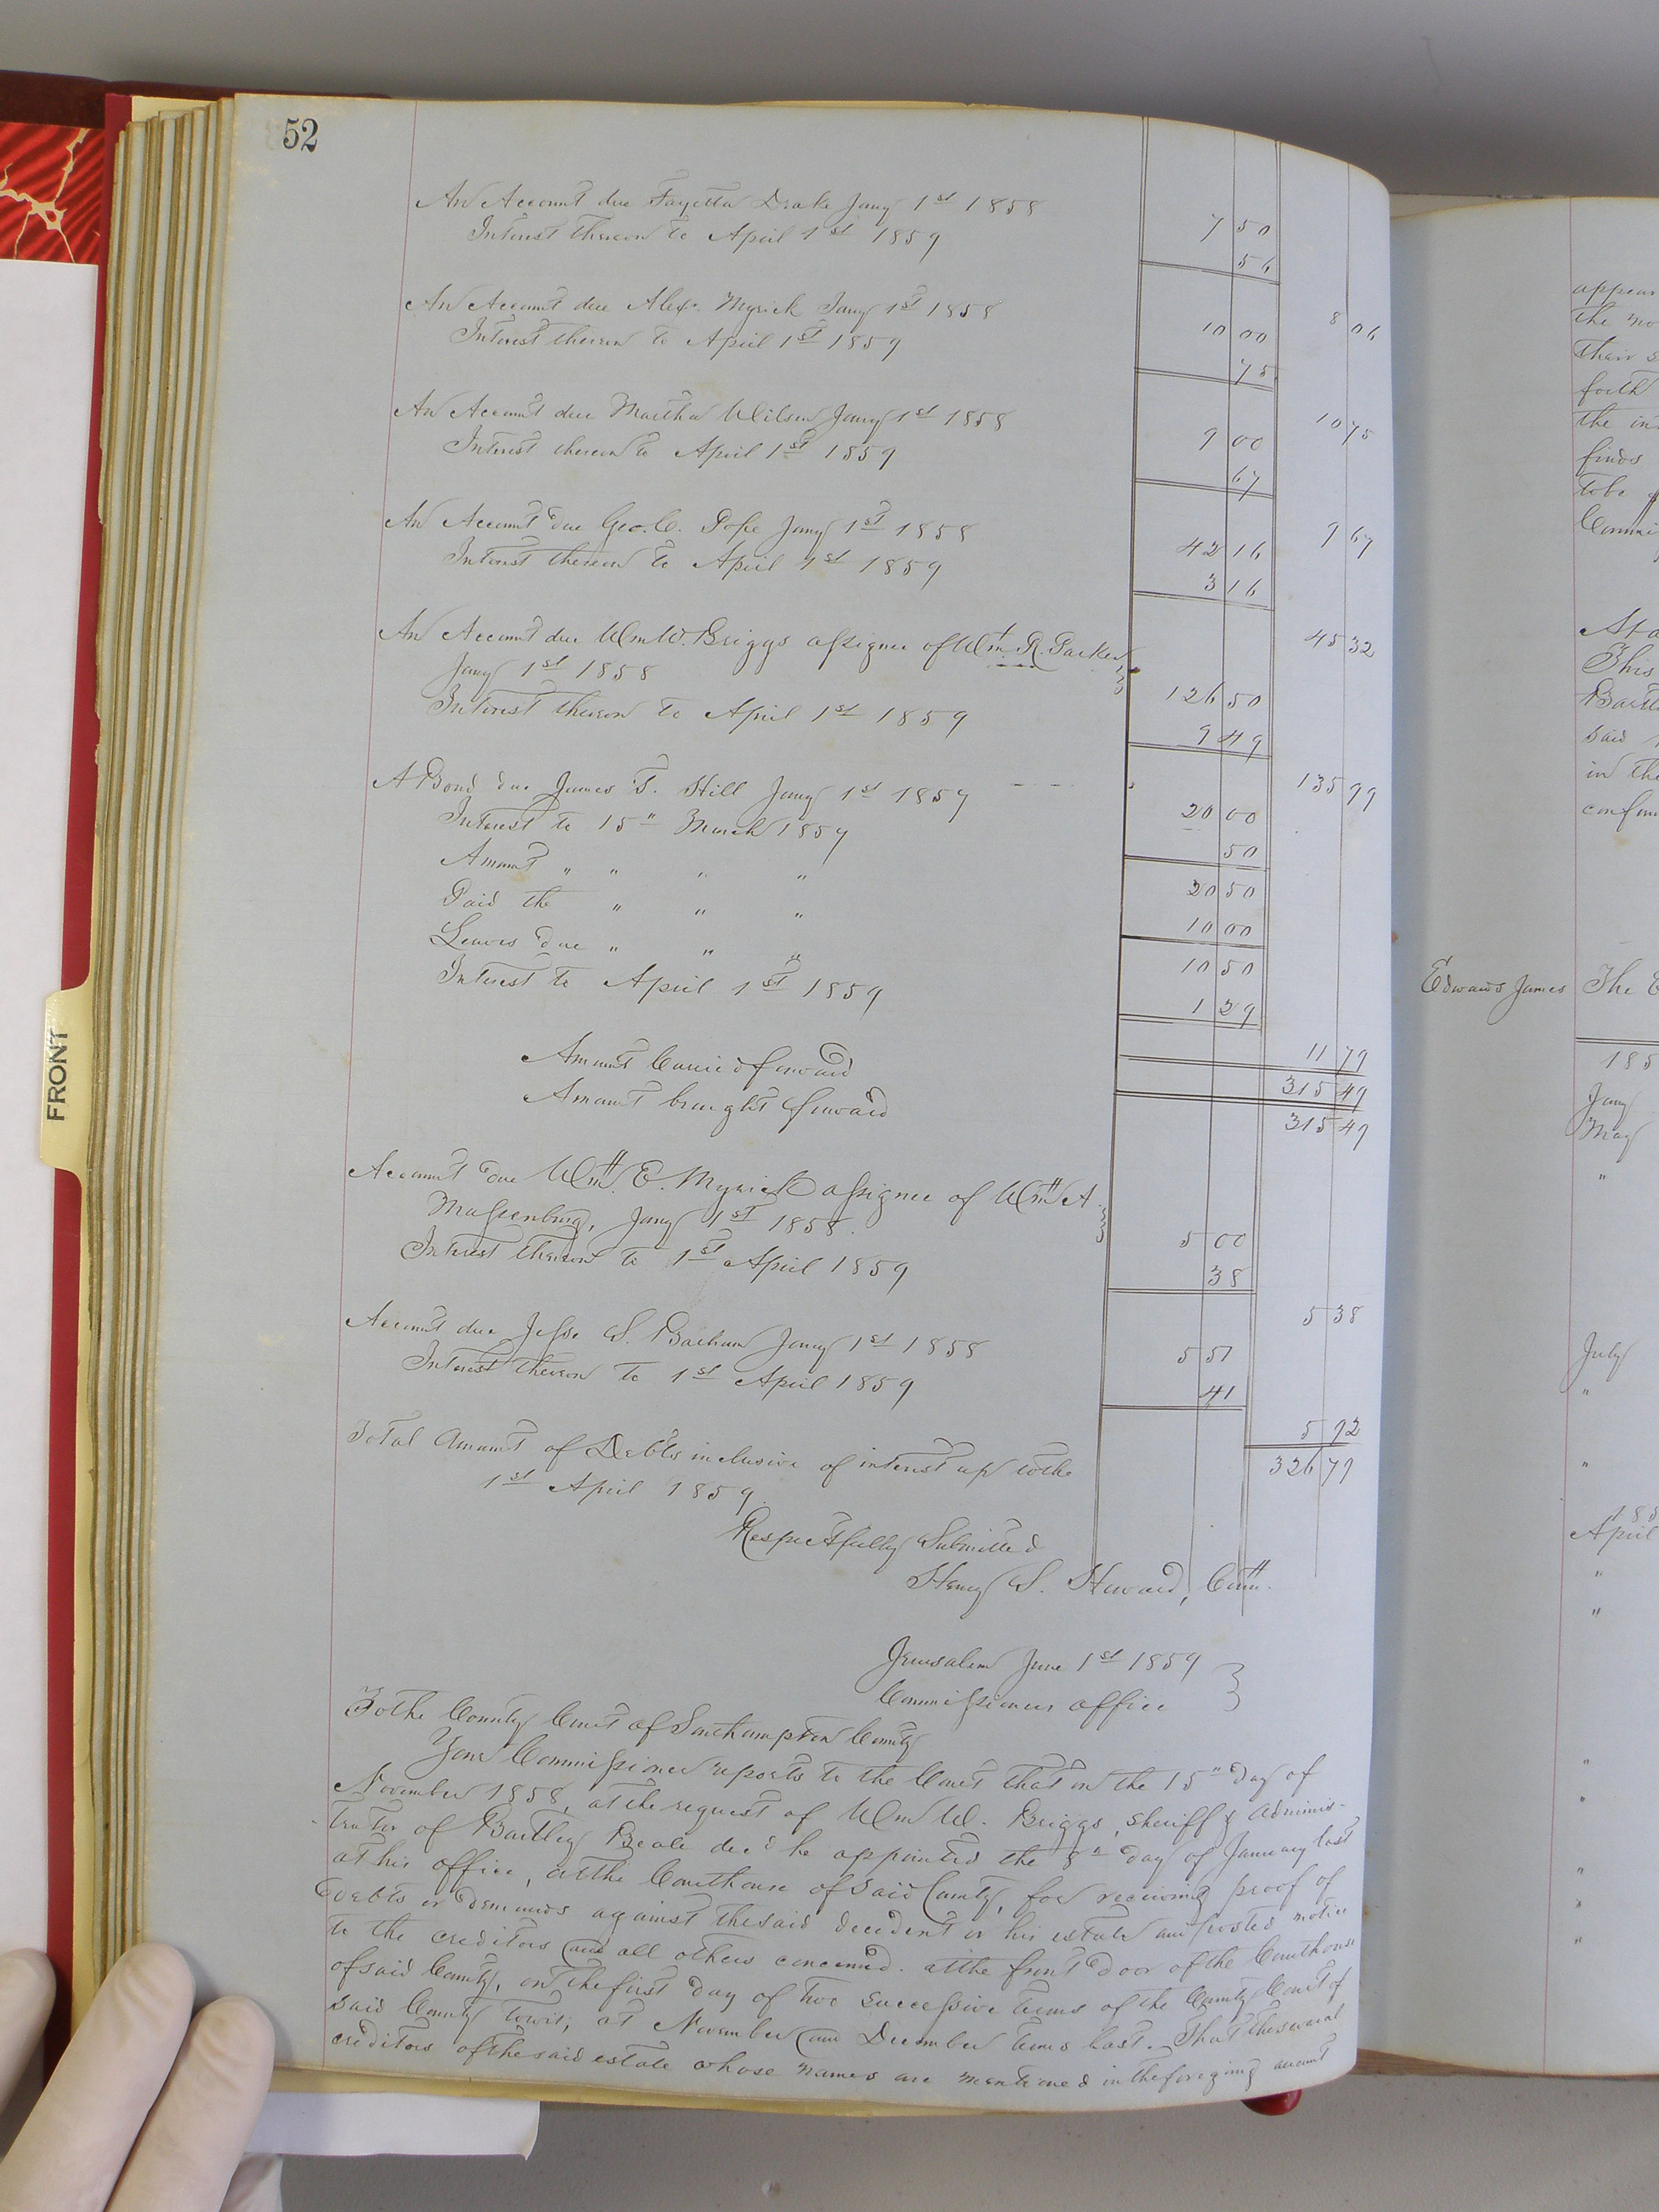 52
An Account due Fayetta Drake Jany 1st 1858 7 50
Interest thereon to April 1st 1859 56
8 06
An Account due Alexr. Myrick Jany 1st 1858 10 00
Interest thereon to April 1st 1859 75
10 75
An Account due Martha Wilson Jany 1st 1858 9 00
Interest thereon to April 1st 1859 67
9 67
An Account due Geo. C. Pope Jany 1st 1858 42 16
Interest thereon to April 1st 1859 3 16
45 32
An Account due Wm W. Briggs assignee of Wm. R. Parker
Jany 1st 1858 126 50
Interest thereon to April 1st 1859 9 49
135 99
A Bond due James T. Hill Jany 1st 1859 20 00
Interest to 15" March 1859 50
Amount " " " " 20 50
Paid the " " " 10 00
Leaves due " " " 10 50
Interest to April 1st 1859 1 29
11 79
Amount Carried forward 315 49
Amount brought forward 315 49
Account due Wm. E. Myrick assignee of Wm A.
Massenburg, Jany 1st 1858. 5 00
Interest thereon to 1st April 1859 38
5 38
Account due Jesse S. Barham Jany 1st 1858 5 51
Interest thereon to 1st April 1859 41
5 92
Total Amount of Debts inclusive of interest up to the 326 79
1st April 1859.
Respectfully Submitted
Henry S. Howard, Comr.
Jerusalem June 1st 1859
Commissioners office
To the County Court of Southampton County
Your Commissioner reports to the Court that on the 15" day of
November 1858, at the request of Wm W. Briggs, sheriff & adminis-
trator of Bartley Beale decd he appointed the 8" day of January last
at his office, at the Courthouse of said County, for receiving proof of
debts or demands against the said decedent or his estate and posted notice
to the creditors and all others concerned. at the front door of the Courthouse
of said County, on the first day of two successive terms of the County Court of
said County towit; at November and December terms last. That the several
creditors of the said estate whose names are mentioned in the foregoing account
FRONT
appear
the
their
forth
the
finds
to be
This
said
in the
Edwards James The
185
Jany
May
"
July
"
"
April
"
"
"
"
"
"
"